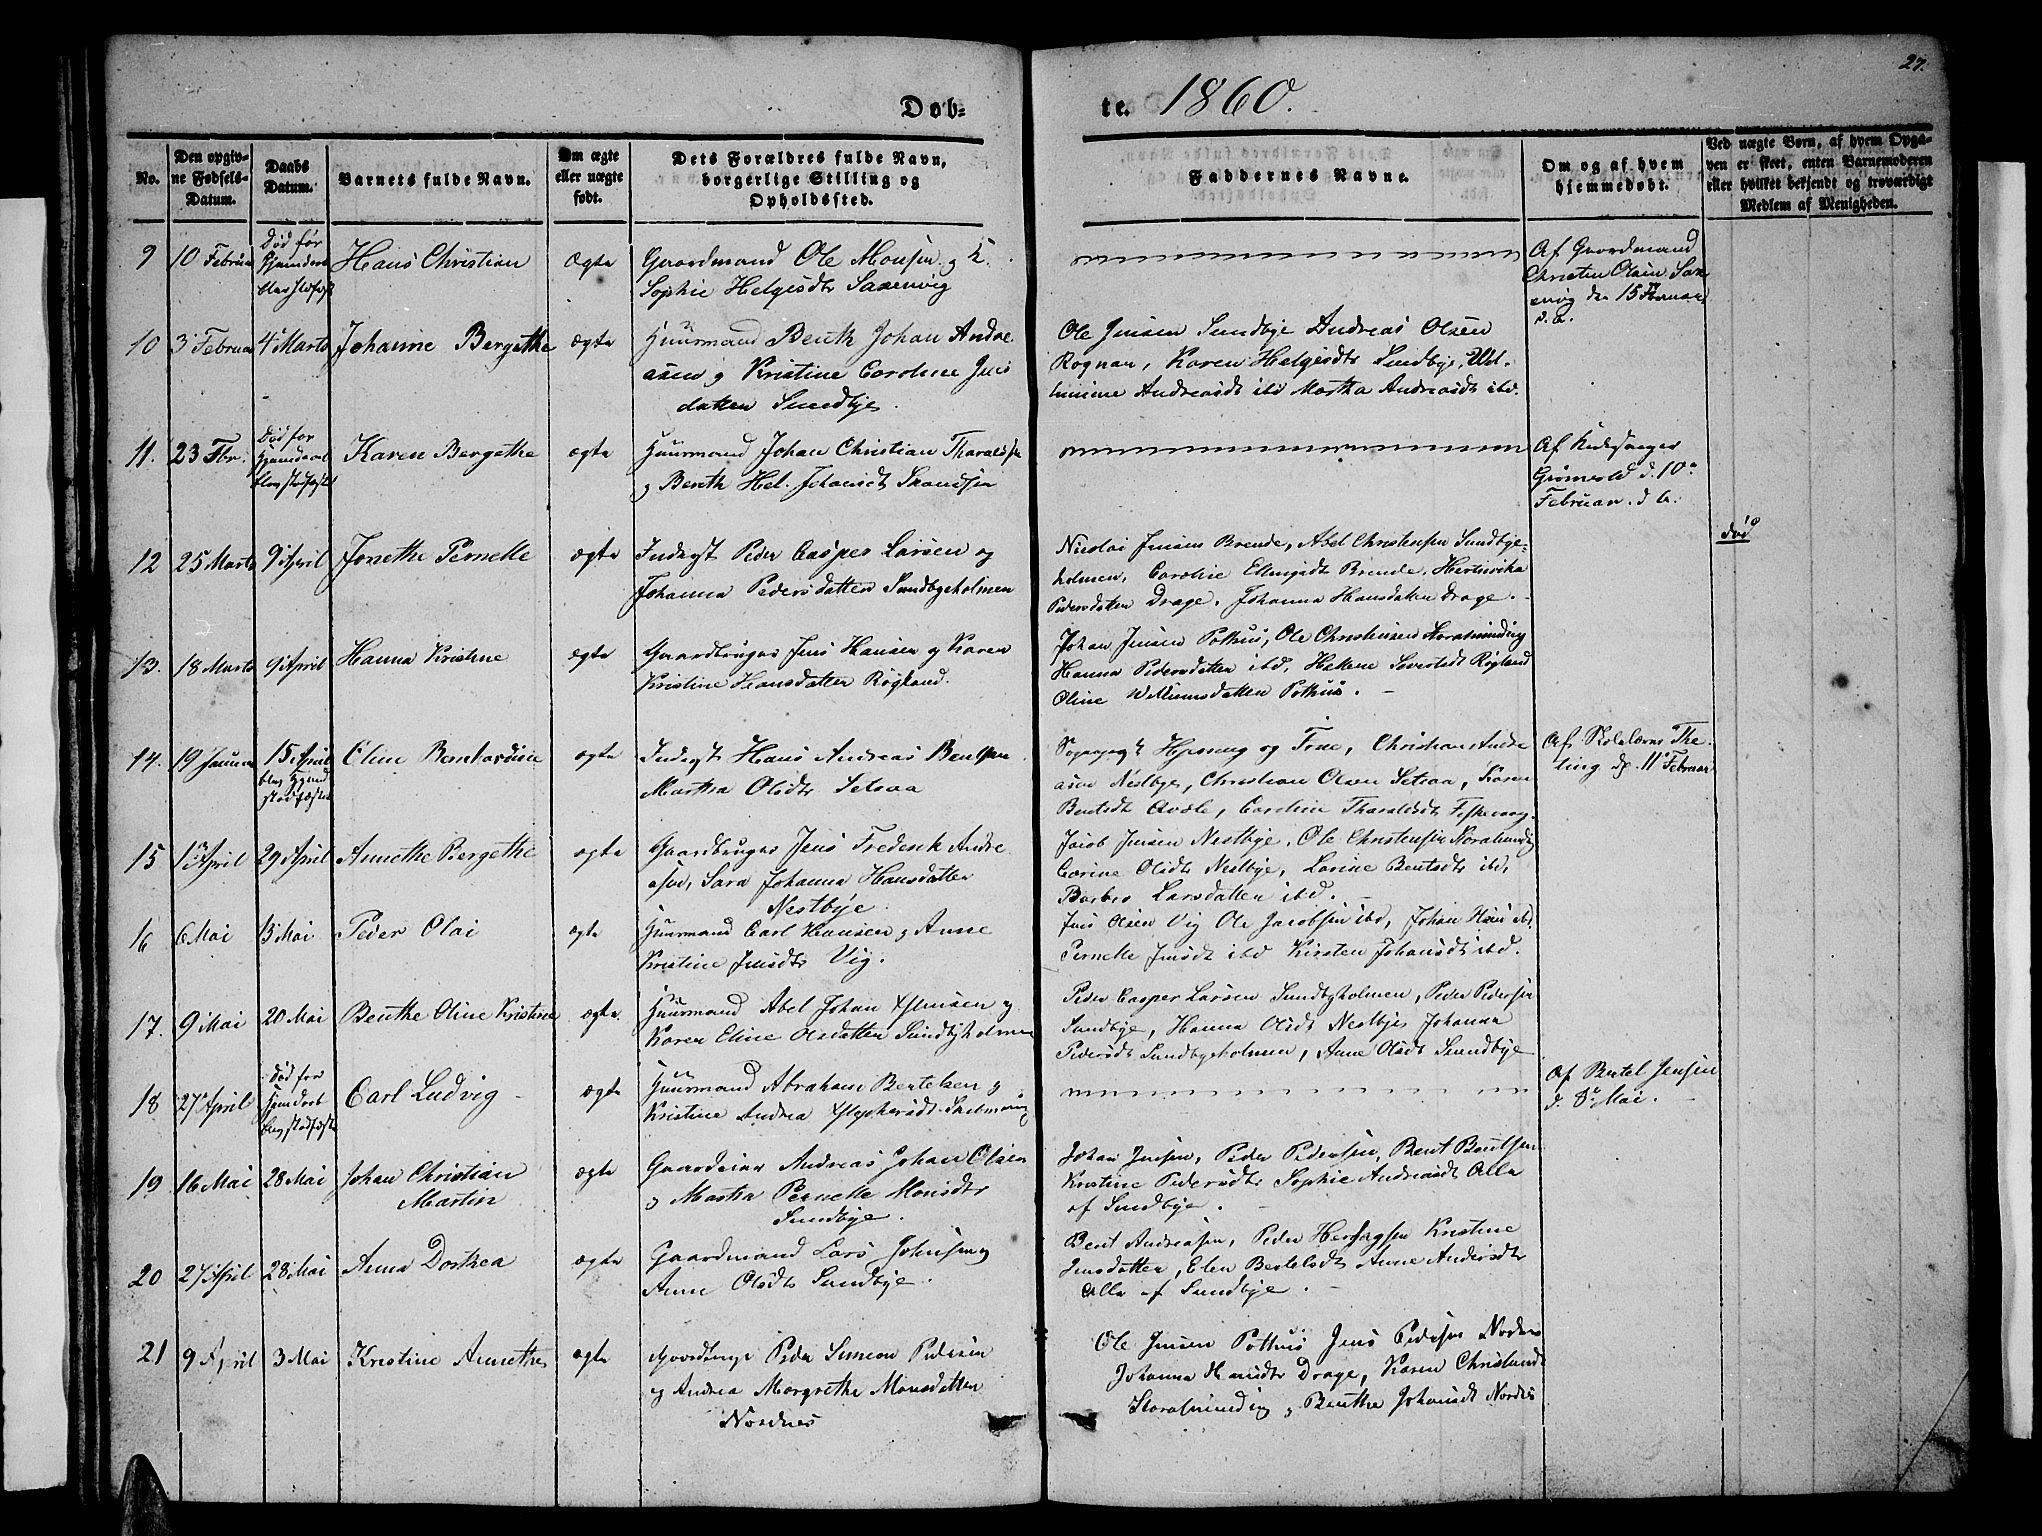 27.
Døb=
te. 1860.
No.
Den opgiv-
ne Fødsels-
Datum.
Daabs
Datum.
Barnets fulde Navn.
Om ægte
eller uægte
født.
Dets Forældres fulde Navn,
borgerlige Stilling og
Opholdssted.
Faddernes Navne.
Om og af hvem
hjemmedøbt.
Ved uægte Børn, af hvem Opga-
ven er skeet, enten Barnemoderen
eller hvilket bekjendt og troværdigt
Medlem af Menigheden.
9 10 Februar Død før Hans Christian Ægte Gaardmand Ole Monsen og
Sophie Helgesdtr Saxenvig
Af Gaardmand
Christen Olsen Sax
envig den 15 Februar
d. a.
10 3 Februar 4 Marts Johanne Bergethe ægte Huusmand Benth Johan Andre
asen og Kristine Caroline Jens
datter Sundbye.
Ole Jensen Sundbye Andreas Olsen
Rognan, Karen Helgesdtr Sundbye, Wil-
helmine Andreasdt ibd Martha Andreasdt ibd.
11. 23 Fbr. Død før Karen Bergethe ægte Huusmand Johan Christian
og Berith Hel. Johansdt
Af
d. 10de
Februar. d. a.
12 25 Marts 9 April Jonethe Pernelle ægte Inderst Peder Casper Larsen og
Johanna Pedersdatter Sundbyeholmen
Nicolai Jensen Brende, Abel Christensen Sundbye-
holmen, Caroline Ellingsdt Brende,
Pedersdatter Drage, Johanna Hansdatter Drage.
død
13. 18 Marts 9 April Hanna Kristine ægte Gaardbruger Jens Hansen og Karen
Kristine Hansdatter Røgland.
Johan Jensen Pothus, Ole Christensen Storalminding
Hanna Pedersdatter ibd, Røgland
Oline Willumsdatter Pothus.
14. 19 Januar 15 April Eline Bernhardine ægte Inderst Hans Andreas Bentsen
Martha Olsdtr Setsaa
og Frue, Christian Andre
asen Nestbye, Christian Olsen Setsaa, Karen
Bentsdt Caroline Tharaldsdt Fiskevaag.
Af Skolelærer
d. 11 Februar
15 1ste April 29 April Annethe Bergethe ægte Gaardbruger Jens Frederik Andre
asen, Sara Johanna Hansdatter
Nestbye.
Jacob Jensen Nestbye, Ole Christensen Storalminding
Corine Olsdt Nestbye, Lorine Bentsdt ibd,
Larsdatter ibd.
16 6 Mai 13 Mai Peder Olai ægte Huusmand Carl Hansen og Anne
Kristine Jensdtr Vig.
Jens Olsen Vig Ole Jacobsen ibd, Johan ibd
Pernelle Jensdt ibd Kirsten Johansdt ibd.
17. 9 Mai 20 Mai Benthe Oline Kristine ægte Huusmand Abel Johan og
Karen Eline Olsdatter Sundbyholmen
Peder Casper Larsen Sundbyholmen, Peder Pedersen
Sundbye, Hanna Olsdt Nestbye Johanna
Pedersdt Sundbyeholmen, Anne Olsdt Sundbye
18 27 April Død før Carl Ludvig ægte Huusmand Abraham Bertelsen og
Kristine Andrea
Af Bertel Jensen
d. 8de Mai.
19 16 Mai 28 Mai Johan Christian
Martin
ægte Gaardeier Andreas Johan Olsen
og Martha Pernelle Monsdtr
Sundbye.
Johan Jensen, Peder Pedersen, Bent Bentsen
Kristine Pedersdtr Sophie Andreasdt Alle
af Sundbye.
20 27 April 28 Mai Anna Dorthea ægte Gaardmand Lars Johnsen og
Anne Olsdtr Sundbye.
Bent Andreasen, Peder Kristine
Jensdatter, Elen Bertelsdt Anne Andersdtr
Alle af Sundbye.
21 9 April 3 Mai Kristine Annethe ægte Gaardbruger Peder Simeon Pedersen
og Andrea Margrethe Monsdatter
Nordnes
Ole Jensen Pothus Jens Pedersen Nordnes
Johanna Hansdtr Drage, Karen Christensdt
Storalminding og Benthe Johansdt Nordnes